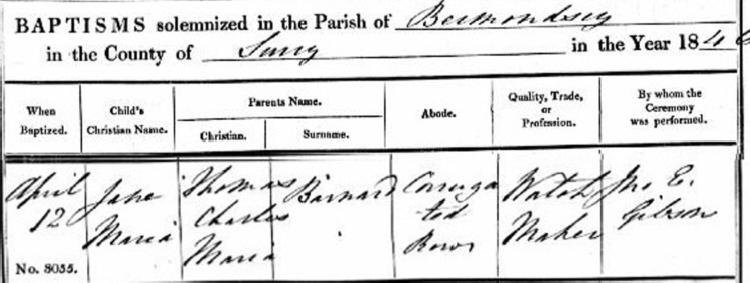 BAPTISMS solemnized in the Parish of Bermondsey
in the County of Surry in the Year 1846
When Baptized.
Child's Christian Name.
Parents Name.
Christian.
Surname.
Abode.
Quality, Trade, or Profession.
By whom the Ceremony was performed.
April
12
No. 3055.
Jane
Maria
Thomas
Charles
Maria
Barnard
Corruga
ted
Rows
Watch
Maker
Jno E.
Gibson